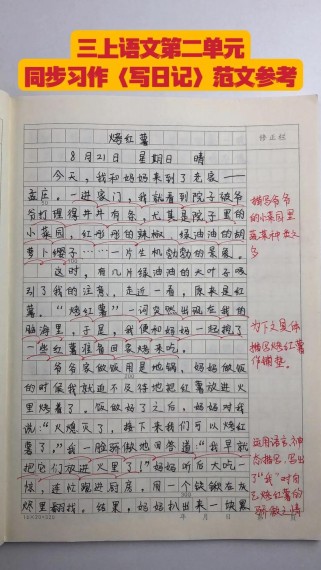 三上语文第二单元
同步习作《写日记》范文参考
修正栏
烧红薯
8月21日 星期日 晴
今天，我和妈妈来到了老家——
孟庄。一进家门，我就看到院子被爷
爷打理得井井有条，尤其是院子里的
小菜园，红彤彤的辣椒、绿油油的胡
萝卜缨子……一片生机勃勃的景象。
描写爷爷
的小菜园里
蔬菜种类之
多
这时，有几片绿油油的大叶子吸
引了我的注意，走近一看，原来是红
薯。“烧红薯”一词突然出现在我的
脑海里，于是，我便和妈妈一起挖了
一些红薯准备回家烧来吃。
为下文具体
描写烧红薯
作铺垫。
爷爷家做饭用是地锅，妈妈做饭
的时候我就迫不及待地把红薯放进火
里烧着了。饭做好了之后，妈妈对我
说：“火熄灭了，接下来我们可以烧红
薯了。”我一脸骄傲地回答道：“我早就
把它们放进火里了！”妈妈听后大吃一
惊，连忙跑进厨房，用一个铁锹在灰
烬里翻找。结果，妈妈扒出来一块黑
运用语言、神
态描写，写出
了“我”对自
己烧红薯的
骄傲之情
年 月 日